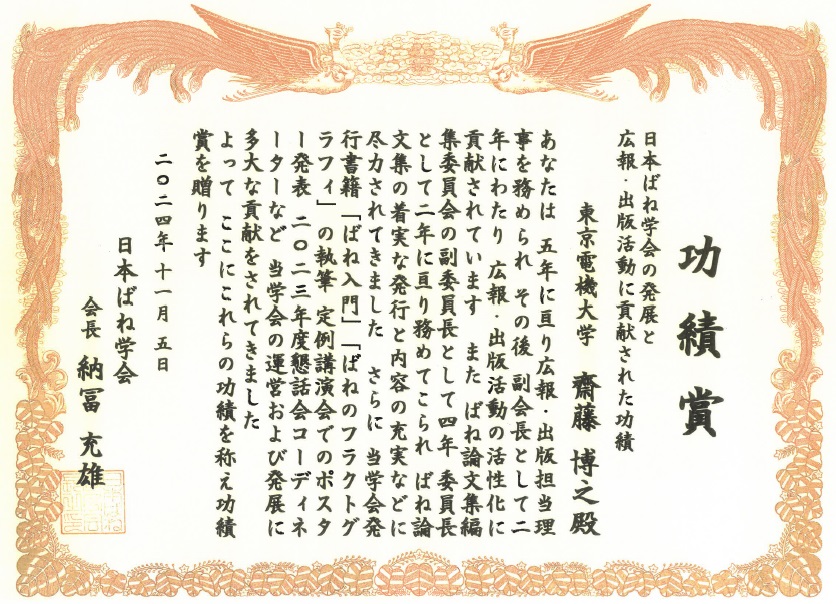 功績賞
日本ばね学会の発展と
広報・出版活動に貢献された功績
東京電機大学 齋藤 博之殿
あなたは 五年に亘り広報・出版担当理
事を務められ その後 副会長として二
年にわたり 広報・出版活動の活性化に
貢献されています また ばね論文集編
集委員会の副委員長として四年 委員長
として二年に亘り務めてこられ ばね論
文集の着実な発行と内容の充実などに
尽力されてきました さらに 当学会発
行書籍「ばね入門」「ばねのフラクトグ
ラフィ」の執筆 定例講演会でのポスタ
ー発表 二〇二三年度懇話会コーディネ
ーターなど 当学会の運営および発展に
多大な貢献をされてきました
よって ここにこれらの功績を称え功績
賞を贈ります
二〇二四年 十一月 五日
日本ばね学会
会長 納冨 充雄